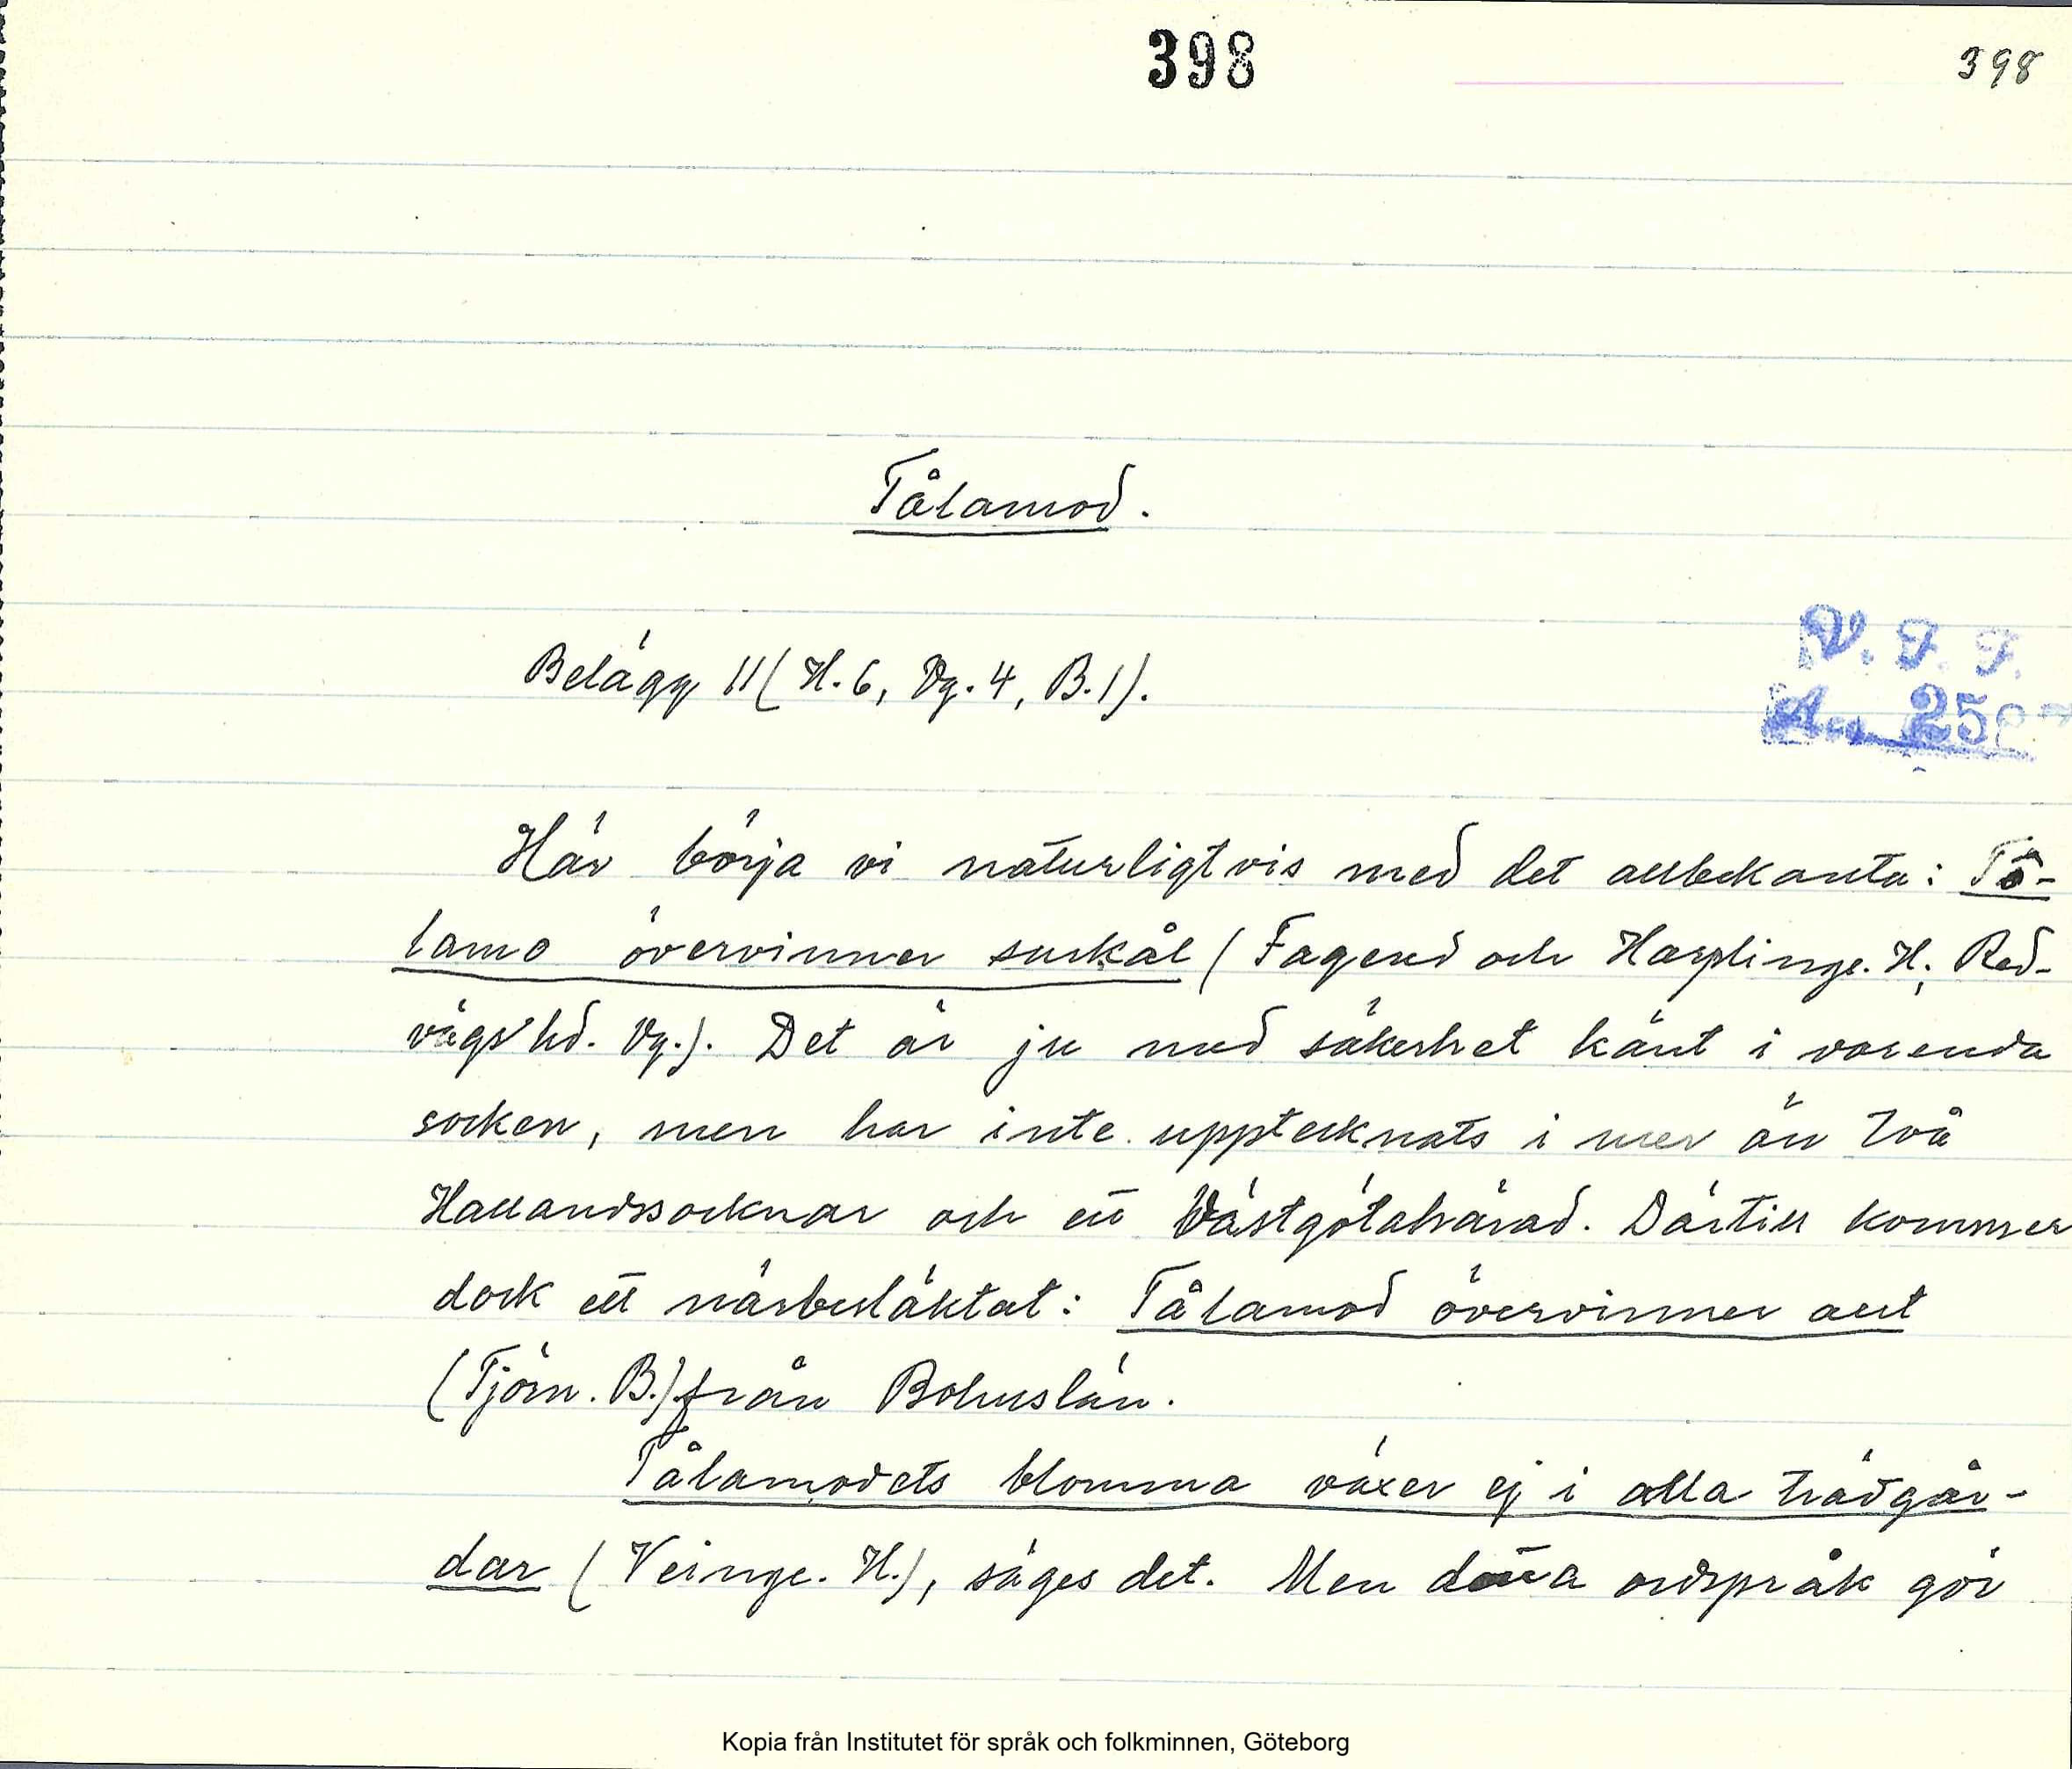 398
398
Tålamod.
Belägg 11 (H. 6, Vg. 4, B. 1).
V. F. F.
Här börja vi naturligtvis med det allbekanta: Tå-
lamo övervinner surkål (Fagered och Harplinge. H; Red-
vägs hd. Vg.). Det är ju med säkerhet känt i varenda
socken, men har inte upptecknats i mer än två
Hallandssocknar och ett Västgötahärad. Därtill kommer
dock ett närbesläktat: Tålamod övervinner allt
(Tjörn. B.) från Bohuslän.
Tålamodets blomma växer ej i alla trädgår-
dar (Veinge. H.), säges det. Men detta ordspråk gör
Kopia från Institutet för språk och folkminnen, Göteborg